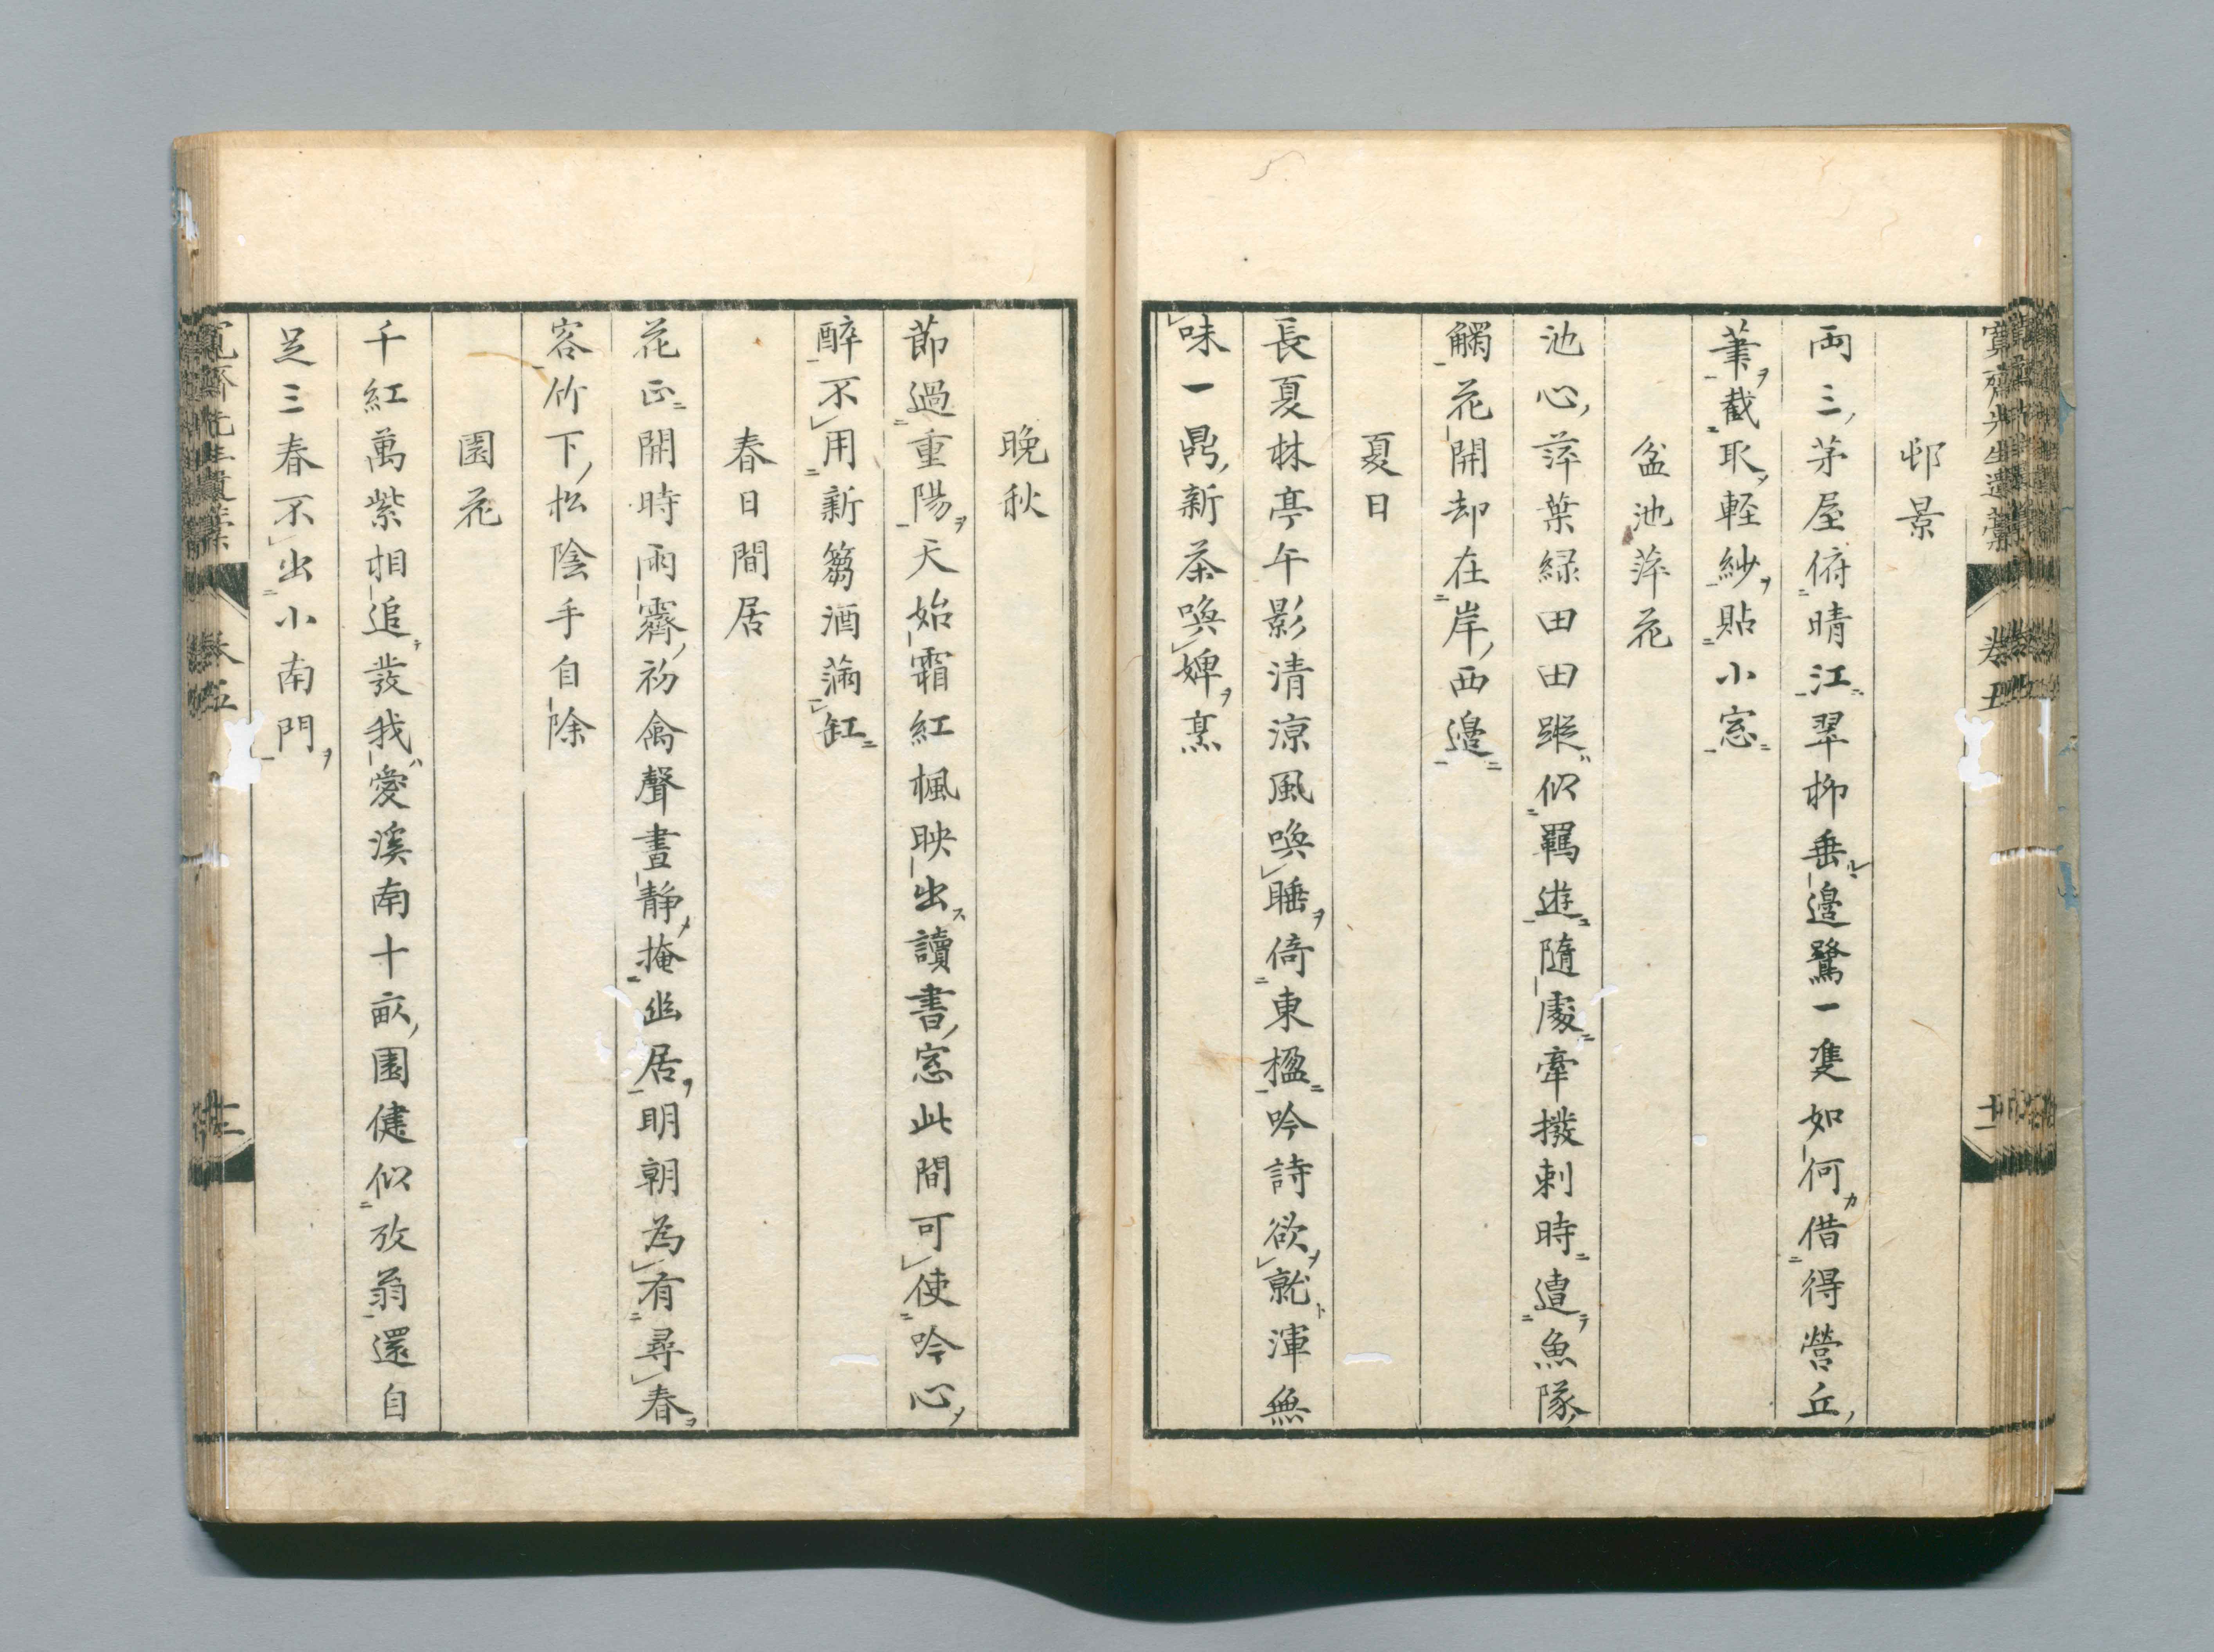 寛齋先生遺藁　卷五　十一
邨景
兩三茅屋俯晴江翠柳垂邊鷺一隻如何借得營丘
筆截取輕紗貼小窓
盆池萍花
池心萍葉緑田田蹤似羈遊隨處牽撥剌時遭魚隊
觸花開却在岸西邊
夏日
長夏林亭午影清涼風喚睡倚東楹吟詩欲就渾無
味一鼎新茶喚婢烹
晩秋
節過重陽天始霜紅楓映出讀書窓此間可使吟心
醉不用新篘酒滿缸
春日間居
花正開時雨霽初禽聲晝靜掩幽居明朝為有尋春
客竹下松陰手自除
園花
千紅萬紫相追發我愛溪南十畝園健似放翁還自
足三春不出小南門
寛齋先生遺藁　卷五